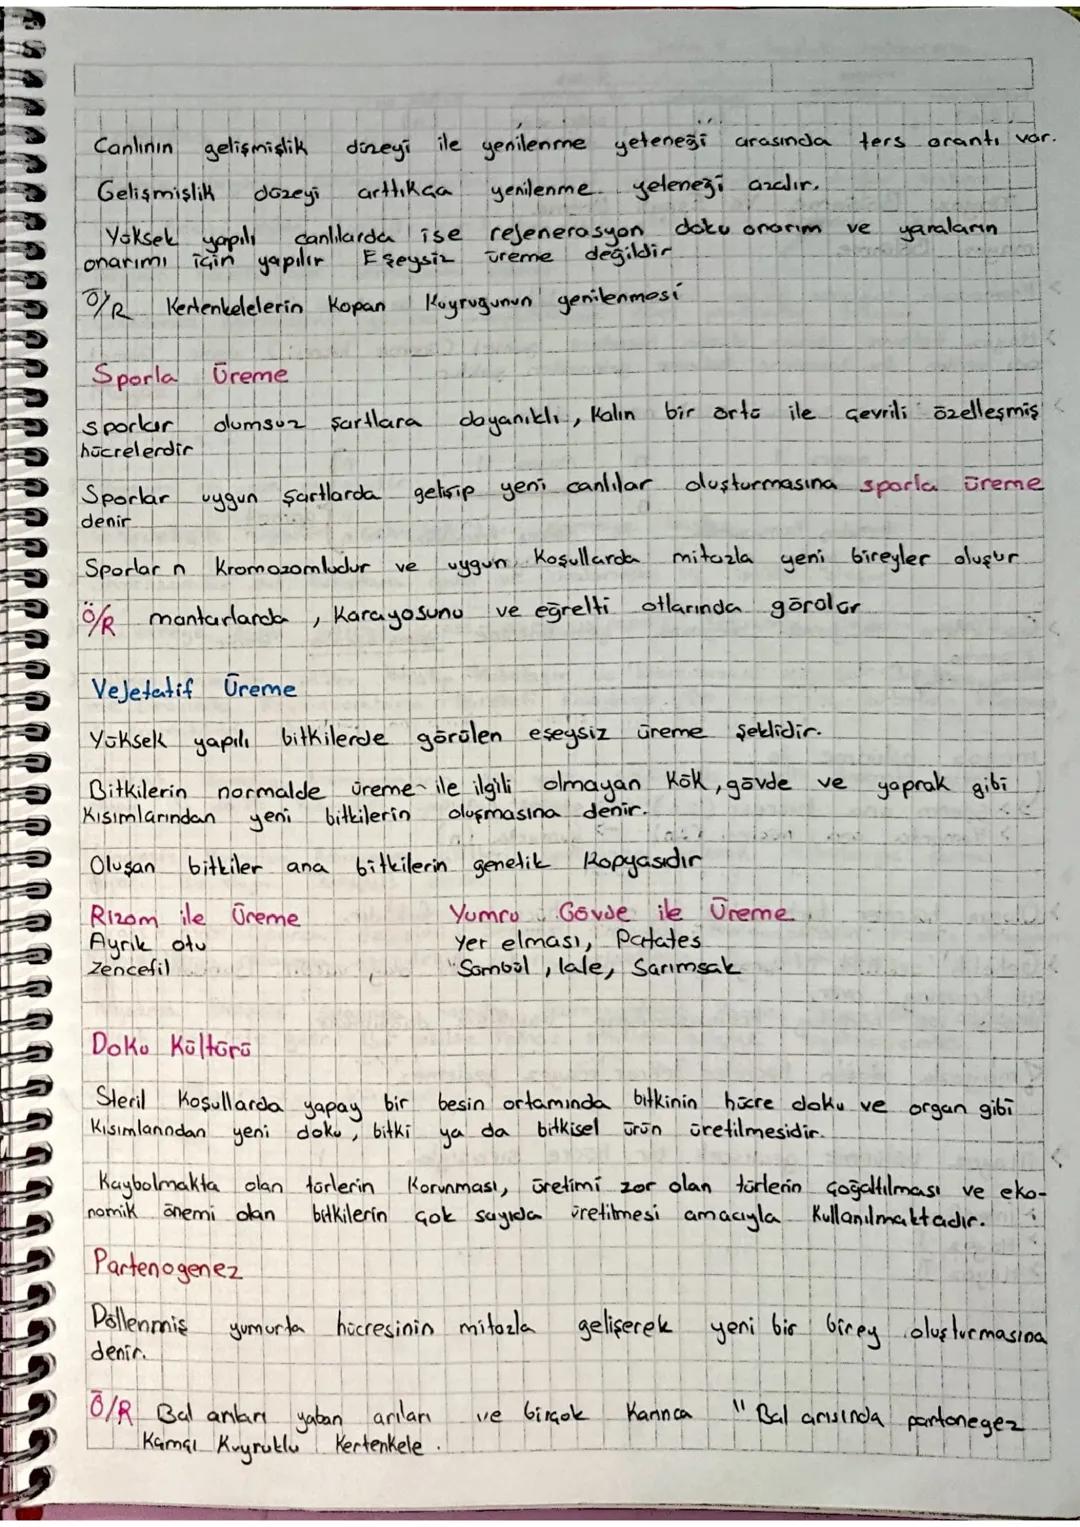 Canlının gelişmişlik düzeyi ile yenilenme yeteneği arasında ters orantı var.
Gelişmişlik düzeyi arttıkça yenilenme yeteneği azalır.
Yüksek yapılı canlılarda ise rejenerasyon doku onarım ve yaraların
onarımı için yapılır Eşeysiz üreme değildir
Ö/R Kertenkelelerin Kopan Kuyruğunun yenilenmesi
Sporla Üreme
sporlar olumsuz şartlara dayanıklı, Kalın bir örtü ile çevrili özelleşmiş
hücrelerdir
Sporlar uygun şartlarda gelişip yeni canlılar oluşturmasına sporla üreme
denir
Sporlar n kromozomludur ve uygun Koşullarda mitozla yeni bireyler oluşur
Ö/R mantarlarda, Karayosunu ve eğrelti otlarında görülür
Vejetatif Üreme
Yüksek yapılı bitkilerde görülen eşeysiz üreme şeklidir.
Bitkilerin normalde üreme ile ilgili olmayan Kök, gövde ve yaprak gibi
Kısımlarından yeni bitkilerin oluşmasına denir.
Oluşan bitkiler ana bitkilerin genetik Kopyasıdır
Rizom ile Üreme
Ayrık otu
Zencefil
Yumru Gövde ile Üreme
Yer elması, Patates
"Sümbül, lale, Sarımsak
Doku Kültürü
Steril Koşullarda yapay bir besin ortamında bitkinin hücre doku ve organ gibi
Kısımlarından yeni doku, bitki ya da bitkisel ürün üretilmesidir.
Kaybolmakta olan türlerin Korunması, üretimi zor olan türlerin çoğaltılması ve eko-
nomik önemi olan bitkilerin çok sayıda üretilmesi amacıyla Kullanılmaktadır.
Partenogenez
Döllenmiş yumurta hücresinin mitozla gelişerek yeni bir birey oluşturmasına
denir.
Ö/R Bal arıları yaban arıları ve birçok Karınca " Bal arısında partonegez
Kamçı Kuyruklu Kertenkele.